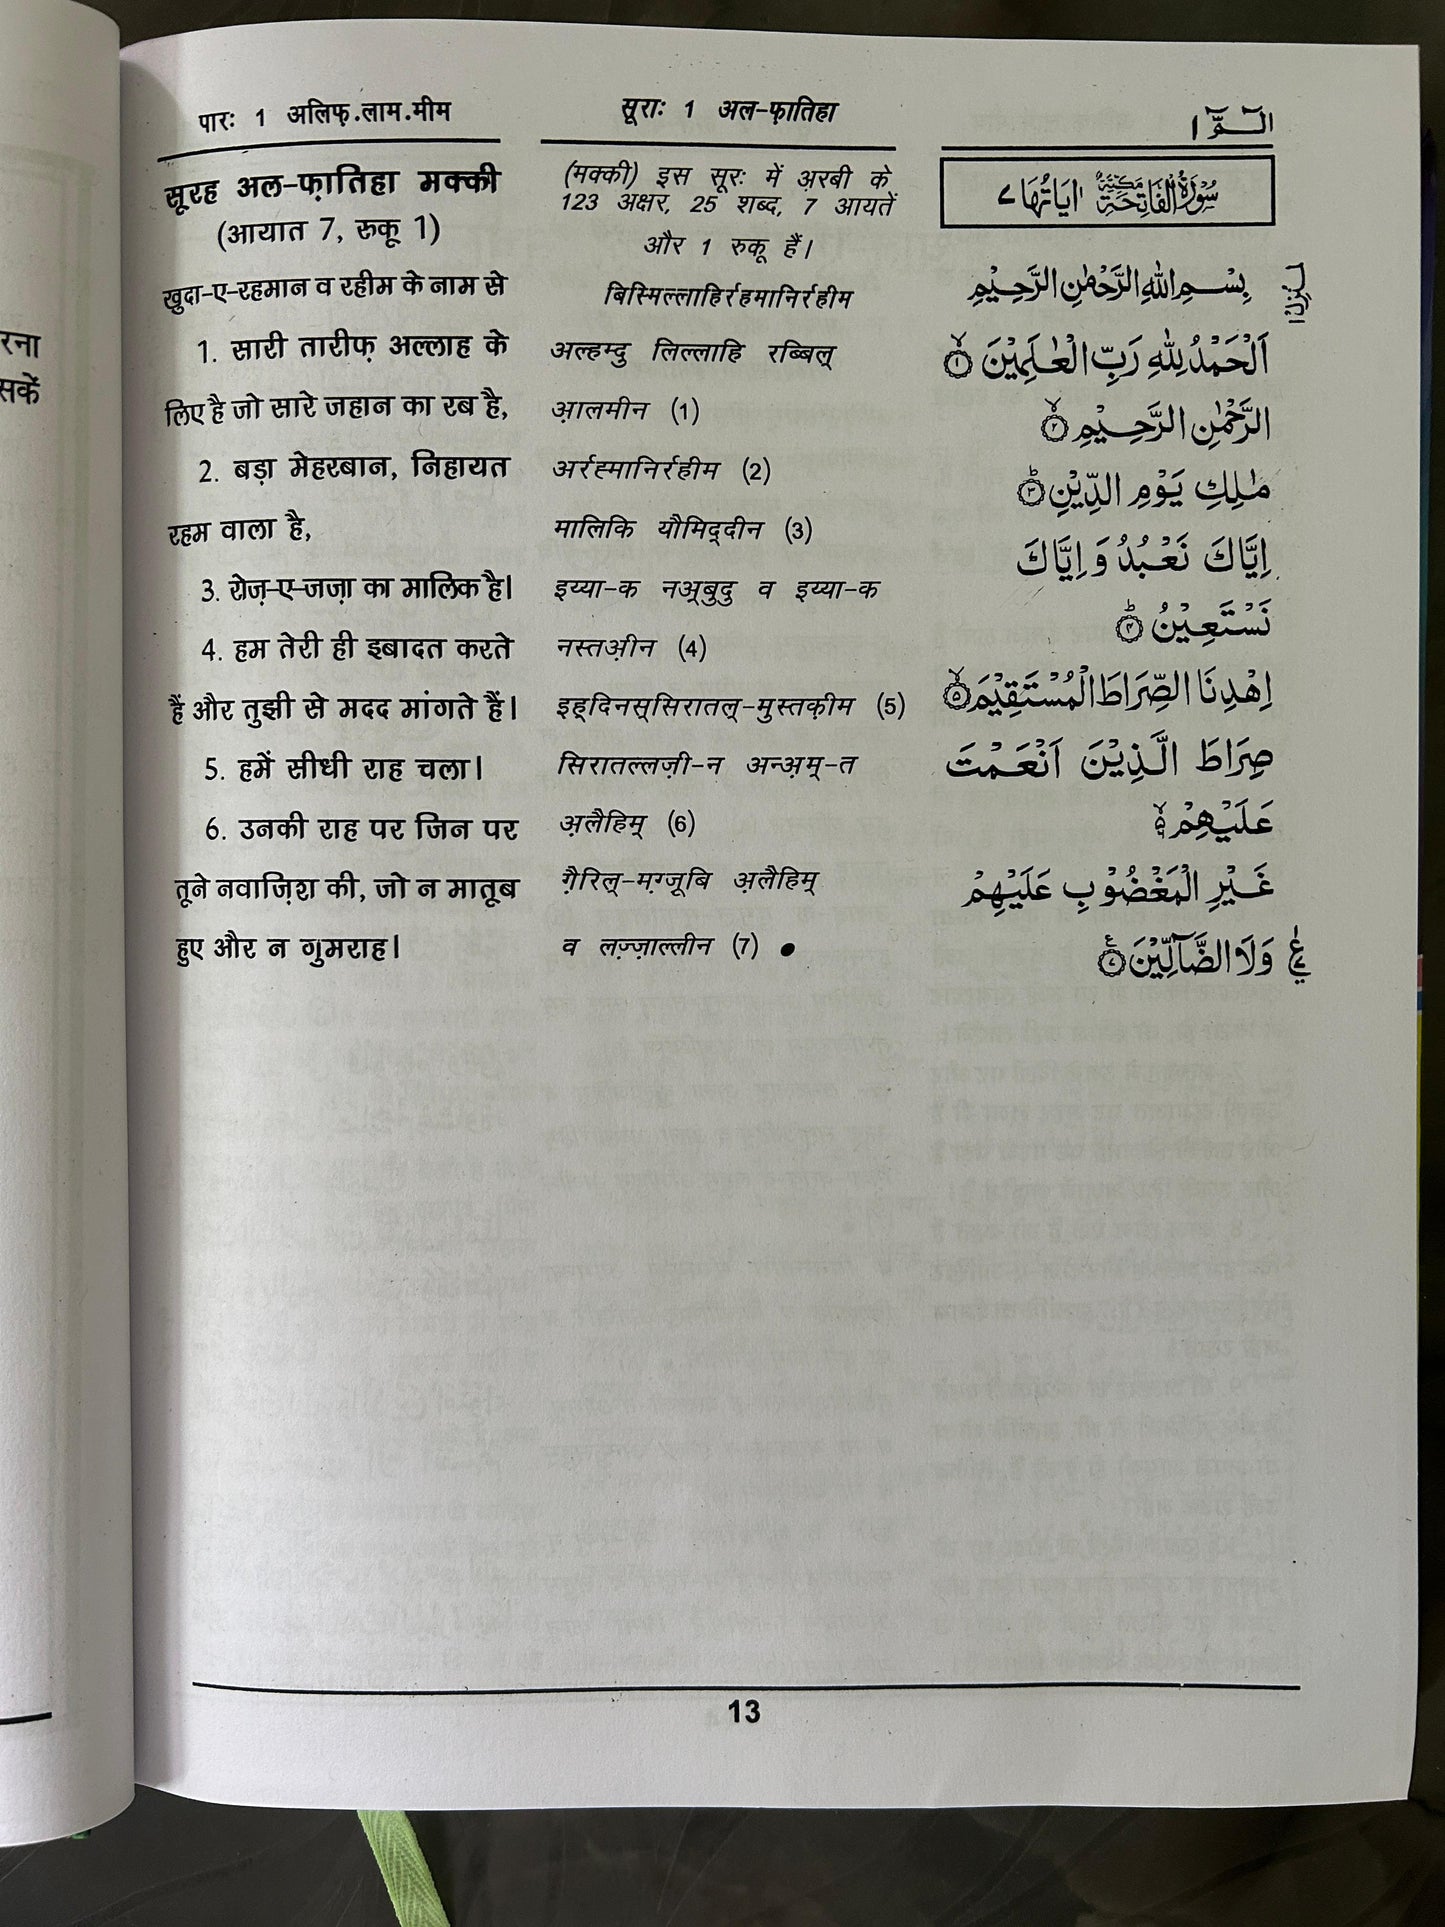 रना
सकें
पारः 1 अलिफ़.लाम.मीम
सूराः 1 अल-फ़ातिहा
الٓمّٓ ۱
सूरह अल-फ़ातिहा मक्की
(आयात 7, रुकू 1)
खुदा-ए-रहमान व रहीम के नाम से
1. सारी तारीफ़ अल्लाह के
लिए है जो सारे जहान का रब है,
2. बड़ा मेहरबान, निहायत
रहम वाला है,
3. रोज़-ए-जज़ा का मालिक है।
4. हम तेरी ही इबादत करते
हैं और तुझी से मदद मांगते हैं।
5. हमें सीधी राह चला।
6. उनकी राह पर जिन पर
तूने नवाज़िश की, जो न मातूब
हुए और न गुमराह।
(मक्की) इस सूरः में अ़रबी के
123 अक्षर, 25 शब्द, 7 आयतें
और 1 रुकू हैं।
बिस्मिल्लाहिर्रहमानिर्रहीम
अल्हम्दु लिल्लाहि रब्बिल्
आ़लमीन (1)
अर्रह्मानिर्रहीम (2)
मालिकि यौमिद्दीन (3)
इय्या-क नअ़्बुदु व इय्या-क
नस्तअ़ीन (4)
इह्दिनस्सिरातल्-मुस्तक़ीम (5)
सिरातल्लज़ी-न अन्अ़म्-त
अ़लैहिम् (6)
ग़ैरिल्-मग़्जूबि अ़लैहिम्
व लज़्ज़ाल्लीन (7) ●
سُوۡرَةُ الۡفَاتِحَةِ مَكِّيَّةٌ اٰيَاتُهَا ۷
بِسۡمِ اللّٰهِ الرَّحۡمٰنِ الرَّحِيۡمِ
اَلۡحَمۡدُ لِلّٰهِ رَبِّ الۡعٰلَمِيۡنَ ۙ‏ ﴿۱﴾
الرَّحۡمٰنِ الرَّحِيۡمِ ۙ‏ ﴿۲﴾
مٰلِكِ يَوۡمِ الدِّيۡنِ ؕ‏ ﴿۳﴾
اِيَّاكَ نَعۡبُدُ وَ اِيَّاكَ
نَسۡتَعِيۡنُ ؕ‏ ﴿۴﴾
اِهۡدِنَا الصِّرَاطَ الۡمُسۡتَقِيۡمَ ۙ‏ ﴿۵﴾
صِرَاطَ الَّذِيۡنَ اَنۡعَمۡتَ
عَلَيۡهِمۡ ۙ
غَيۡرِ الۡمَغۡضُوۡبِ عَلَيۡهِمۡ
وَلَا الضَّآلِّيۡنَ
13